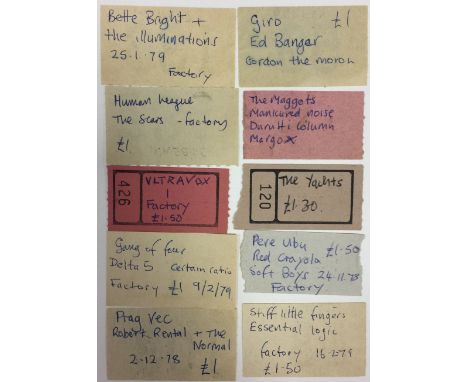 Bette Bright +
the illuminations
25.1.79
Factory
Giro £1
Ed Banger
Gordon the moron
Human league
The Scars - factory
£1
The Maggots
Manicured noise
Durutti column
Margox
426
ULTRAVOX
1
Factory
£1.50
120
The Yachts
£1.30
Gang of four
Delta 5 Certain ratio
Factory £1 9/2/79
Pere Ubu £1.50
Red Crayola
Soft Boys 24.11.78
Factory
Prag Vec
Robert Rental + The
Normal
2.12.78 £1
Stiff little fingers
Essential logic
factory 16.2.79
£1.50